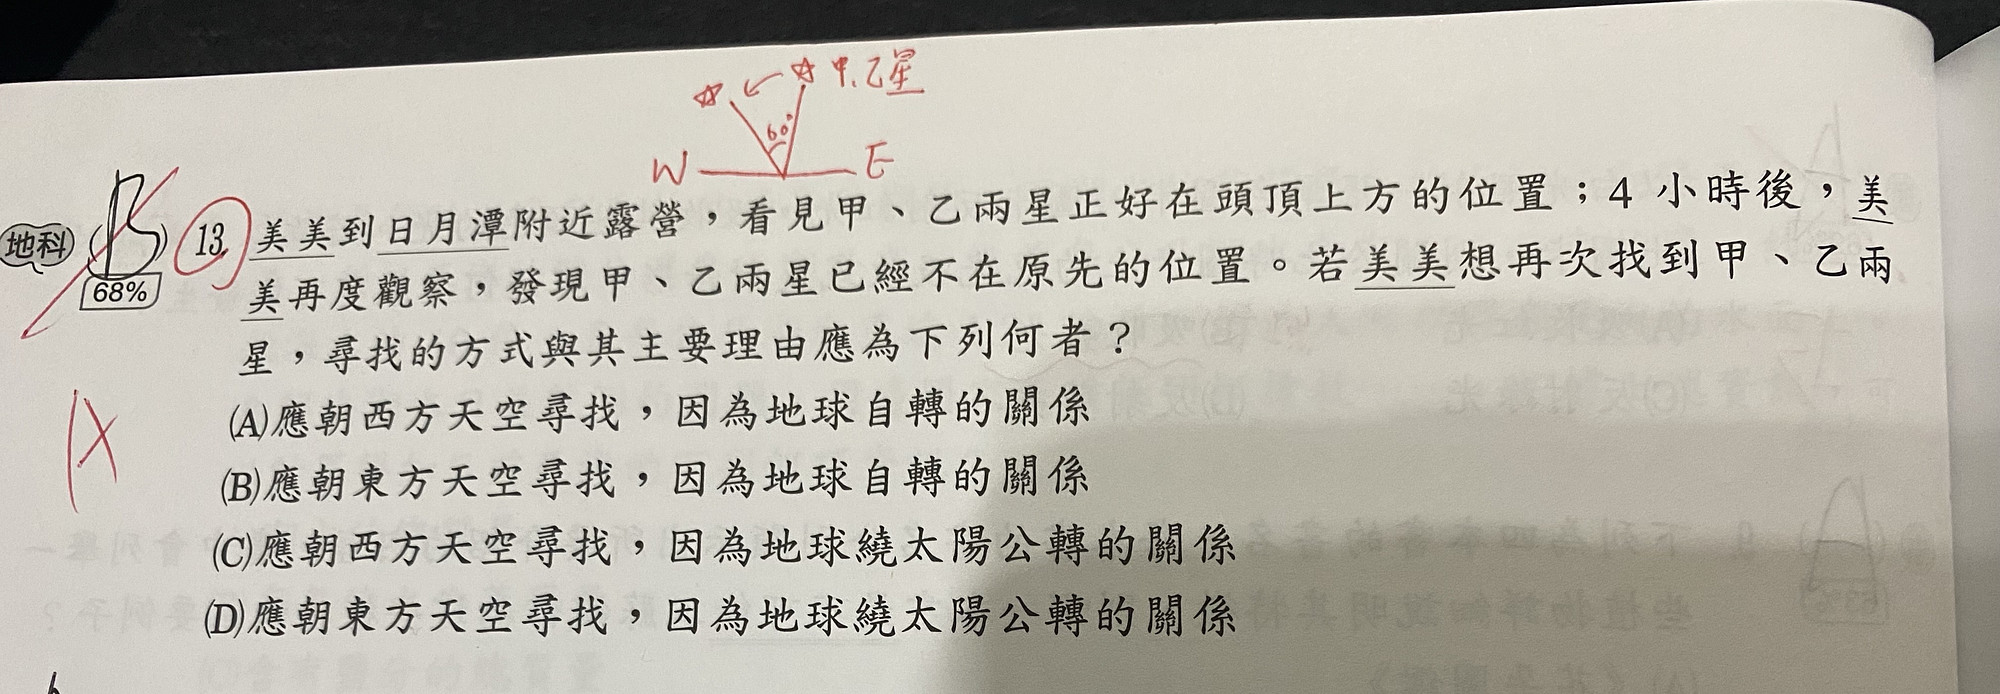 甲.乙星
60°
W E
地科 B 68% 13. 美美到日月潭附近露營，看見甲、乙兩星正好在頭頂上方的位置；4 小時後，美
美再度觀察，發現甲、乙兩星已經不在原先的位置。若美美想再次找到甲、乙兩
星，尋找的方式與其主要理由應為下列何者？
(A)應朝西方天空尋找，因為地球自轉的關係
(B)應朝東方天空尋找，因為地球自轉的關係
(C)應朝西方天空尋找，因為地球繞太陽公轉的關係
(D)應朝東方天空尋找，因為地球繞太陽公轉的關係